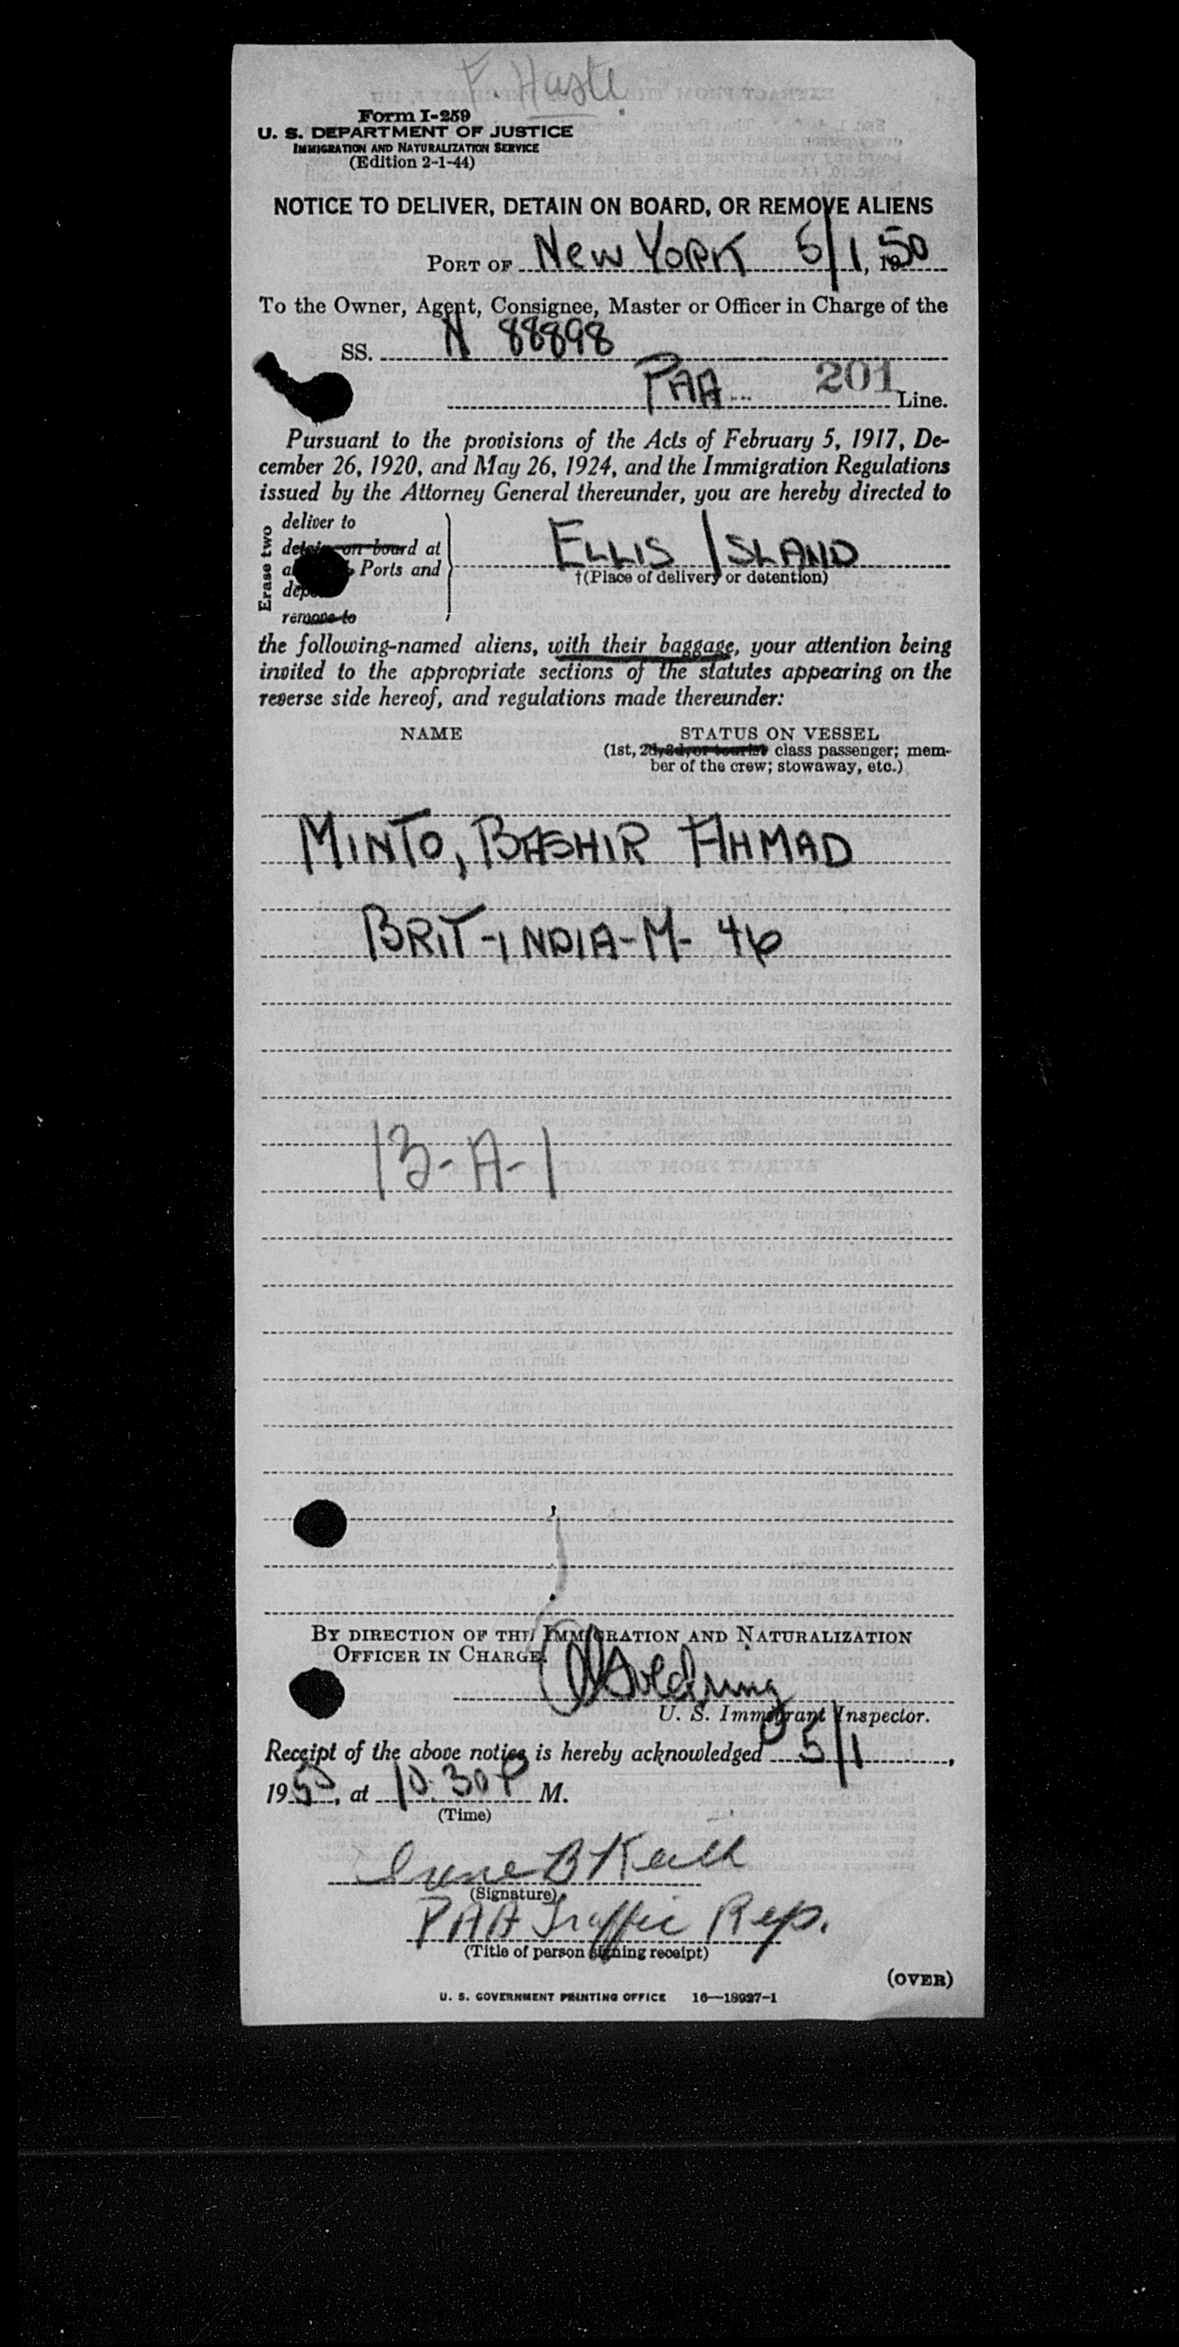 Form I-259
U. S. DEPARTMENT OF JUSTICE
IMMIGRATION AND NATURALIZATION SERVICE
(Edition 2-1-44)
NOTICE TO DELIVER, DETAIN ON BOARD, OR REMOVE ALIENS
PORT OF New York 5/1, 1950
To the Owner, Agent, Consignee, Master or Officer in Charge of the
SS. N 88898
PAA 201 Line.
Pursuant to the provisions of the Acts of February 5, 1917, De-
cember 26, 1920, and May 26, 1924, and the Immigration Regulations
issued by the Attorney General thereunder, you are hereby directed to
Erase two
deliver to
detain on board at
Ports and
remove to
ELLIS ISLAND
†(Place of delivery or detention)
the following-named aliens, with their baggage, your attention being
invited to the appropriate sections of the statutes appearing on the
reverse side hereof, and regulations made thereunder:
NAME STATUS ON VESSEL
(1st, 2d, 3d, or tourist class passenger; mem-
ber of the crew; stowaway, etc.)
MINTO, BASHIR AHMAD
BRIT-INDIA-M- 46
13-A-1
BY DIRECTION OF THE IMMIGRATION AND NATURALIZATION
OFFICER IN CHARGE.
U. S. Immigrant Inspector.
Receipt of the above notice is hereby acknowledged 5/1,
1950, at 10.30 P M.
(Time)
Irene B Keith
(Signature)
PAA Traffic Rep.
(Title of person signing receipt)
(OVER)
U. S. GOVERNMENT PRINTING OFFICE 16—18927-1